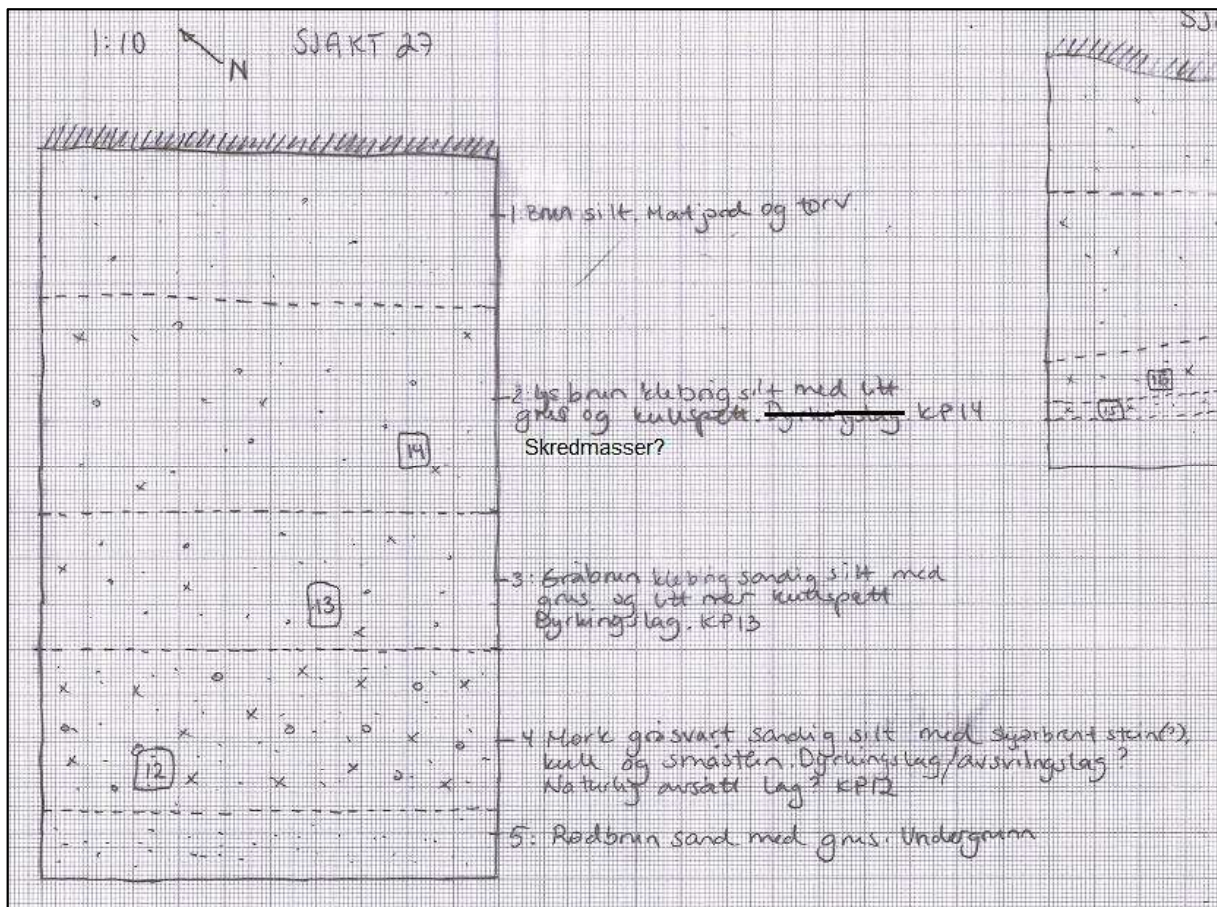 1:10
N
SJAKT 27
SJ
1: Brun silt. Matjord og torv
2: Lys brun klebrig silt med litt
grus og kullspett. Dyrkingslag KP14
Skredmasser?
14
3: Gråbrun klebrig sandig silt med
grus og litt mer kullspett
Dyrkingslag. KP13
13
4 Mørk gråsvart sandig silt med skjørbrent stein(?),
kull og småstein. Dyrkingslag/avsvilngslag?
Naturlig avsatt lag? KP12
12
5: Rødbrun sand med grus. Undergrunn
15